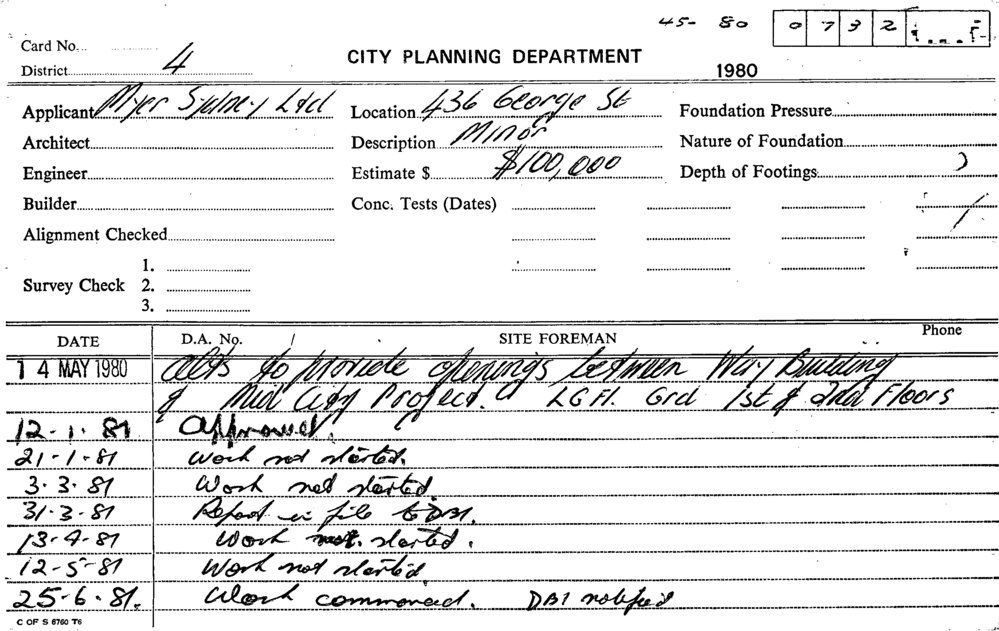 45- 80 0732
Card No.
District 4
CITY PLANNING DEPARTMENT
1980
Applicant Myer Sydney Ltd
Location 436 George St
Foundation Pressure
Architect
Description Minor
Nature of Foundation
Engineer
Estimate $ $100,000
Depth of Footings
Builder
Conc. Tests (Dates)
Alignment Checked
Survey Check
1.
2.
3.
DATE D.A. No. SITE FOREMAN Phone
14 MAY 1980 alts to provide openings between Building
& Mid City Project. LG Fl. Grd 1st & 2nd Floors
12-1-81 Approved.
21-1-81 Work not started.
3.3.81 Work not started
31-3-81 Report in file to DBI.
13-4-81 Work not started.
12-5-81 Work not started.
25-6-81. Work commenced. DBI notified
C OF S 6760 T6